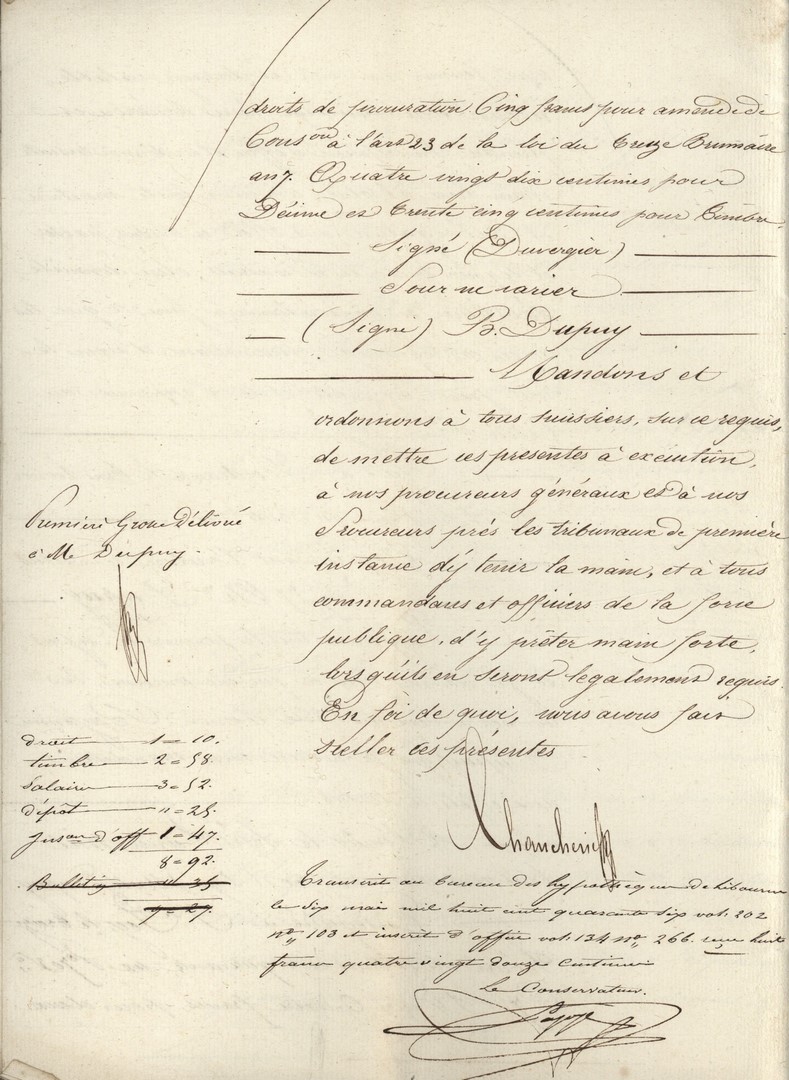 droits de procuration. Cinq francs pour amende de
Cons.on à l'art 23 de la loi du treize Brumaire
an 7. Quatre vingt dix centimes pour
Décime et trente cinq centimes pour timbre.
Signé (Duvergier)
Pour ne varier
(Signé) B. Dupuy
Mandons et
ordonnons à tous huissiers, sur ce requis,
de mettre ces presentes à exécution,
à nos procureurs généraux et à nos
Procureurs prés les tribunaux de première
instance d'y tenir la main, et à tous
commandans et officiers de la force
publique, d'y prêter main forte,
lorsqu'ils en seront legalement requis.
En foi de quoi, nous avons fait
sceller ces présentes
Première Grosse délivré
à Me Dupuy.
droit 1 = 10.
timbre 2 = 58
Salaire 3 = 52
dépôt " = 25
d'off 1 = 47.
8 = 92.
Bulletin " 35
9 = 27
Transcrit au bureau des hypothèques de Libourne
le six mai mil huit cent quarante six vol. 202
no 103 et inscrit d'office vol. 134 no 266. reçu huit
francs quatre vingt douze centimes
Le Conservateur.